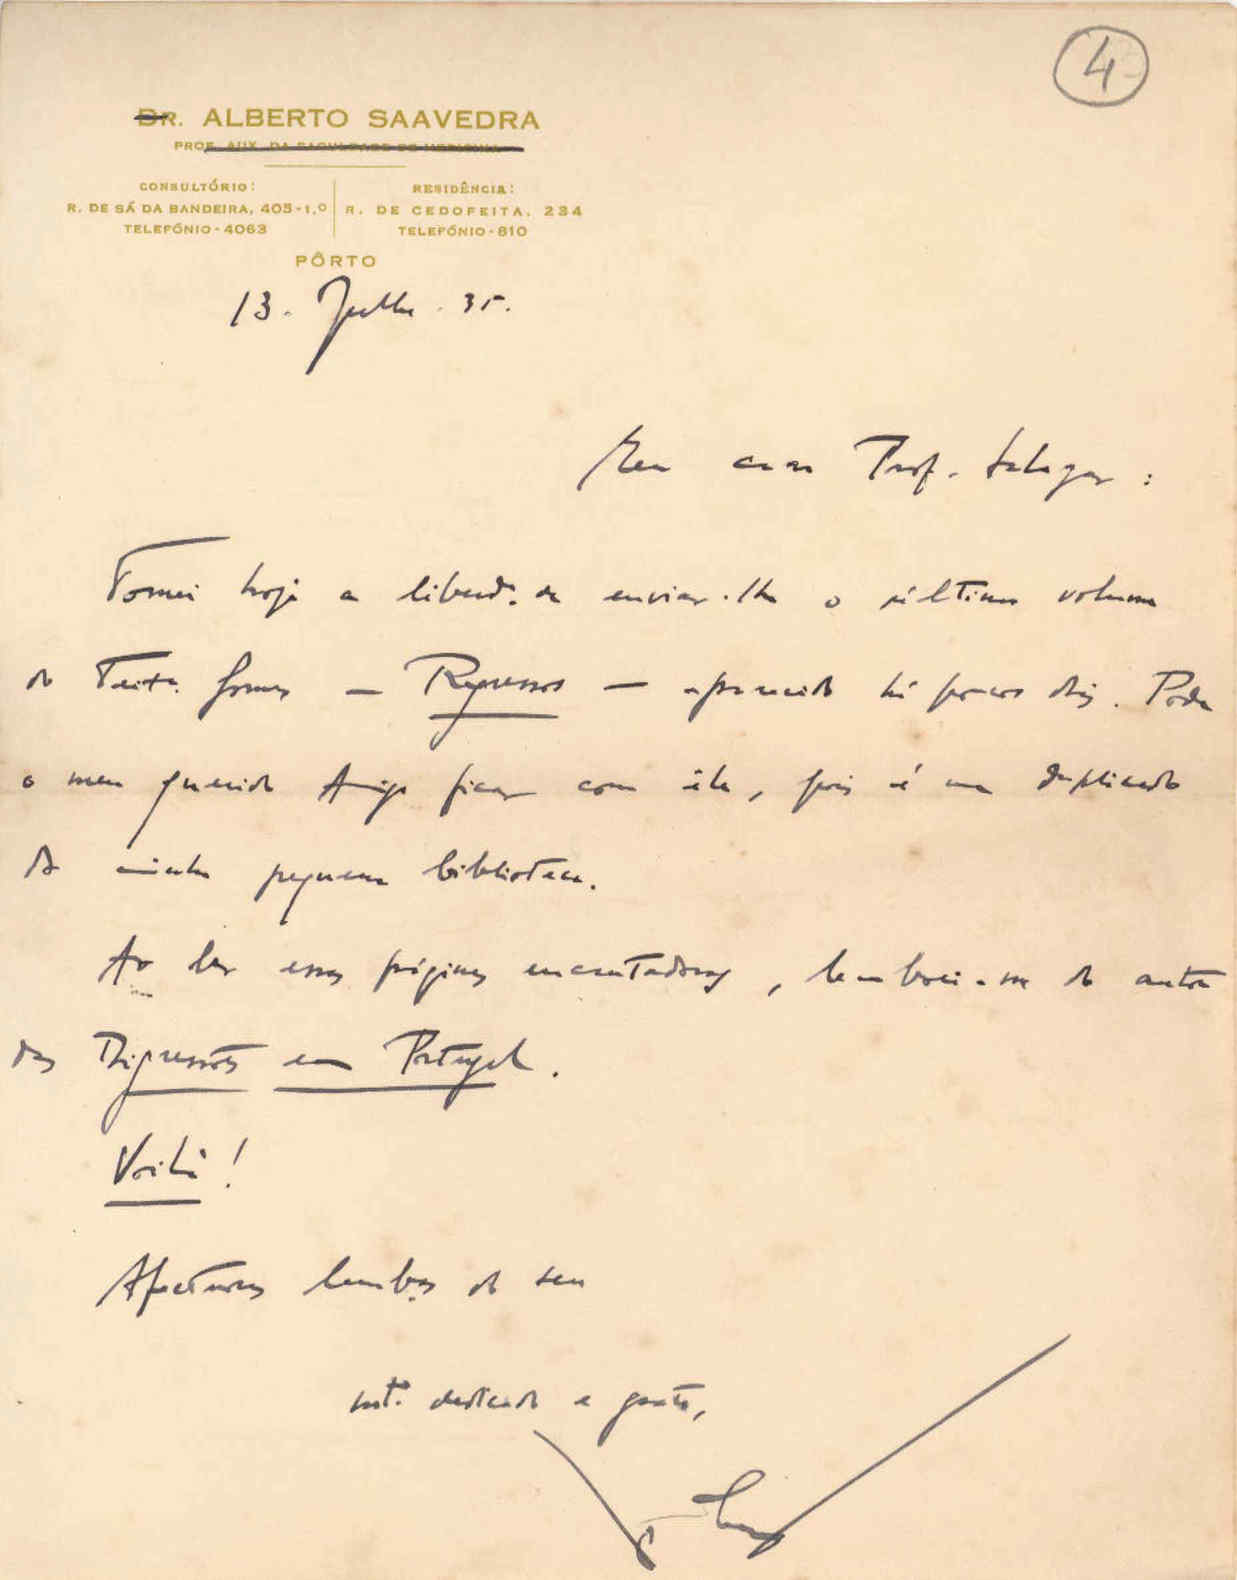 4
DR. ALBERTO SAAVEDRA
PROF. AUX. DA FACULDADE DE MEDICINA
CONSULTÓRIO:
R. DE SÁ DA BANDEIRA, 405-1.º
TELEFÓNIO-4063
RESIDÊNCIA:
R. DE CEDOFEITA, 234
TELEFÓNIO-810
PÔRTO
13. Julho. 35.
Meu caro Prof. Salazar:
Tomei hoje a liberd.e de enviar-lhe o último volume
de Teixª Gomes — Regressos — aparecido há poucos dias. Pode
o meu querido Amigo ficar com êle, pois é um duplicado
da minha pequena biblioteca.
Ao ler essas páginas encantadoras, lembrei-me do autor
das Digressões em Portugal.
Voilà!
Afectuosas lembças do seu
mtº dedicado e grato,